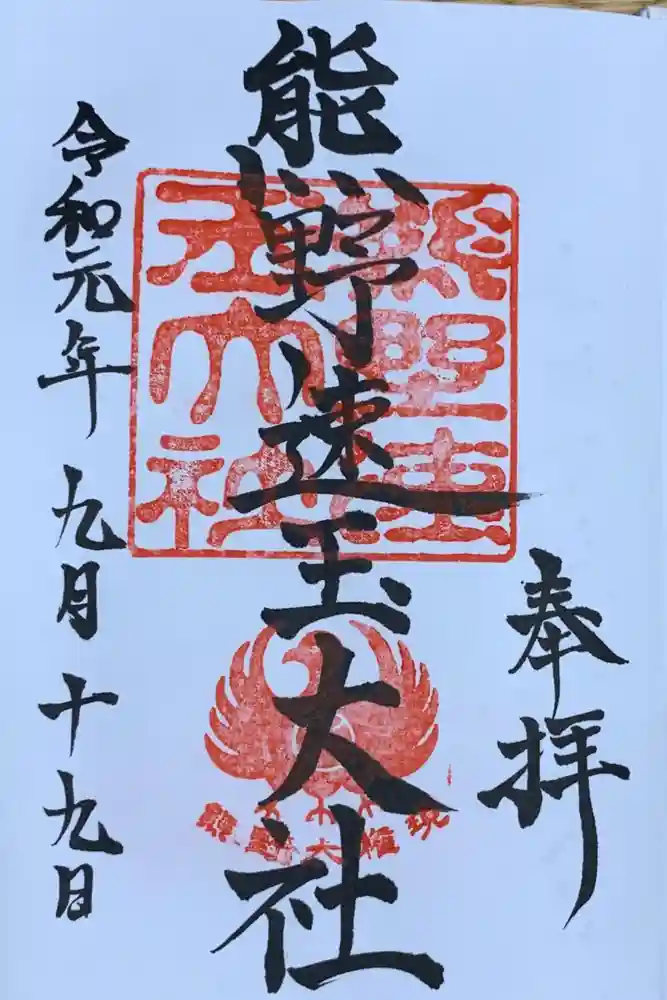 奉拝
熊野速玉大社
熊野速
玉大社
熊野大権現
令和元年九月十九日